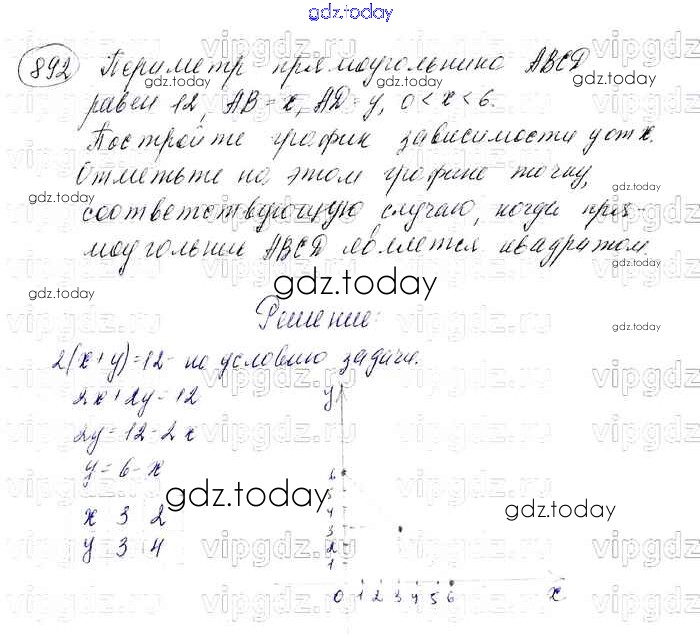 gdz.today
892 Периметр прямоугольника ABCD
равен 12, AB = x, AD = y, 0 < x < 6.
Постройте график зависимости y от x.
Отметьте на этом графике точку,
соответствующую случаю, когда пря-
моугольник ABCD является квадратом.
gdz.today
Решение:
2(x+y)=12 - по условию задачи.
2x+2y=12
2y=12-2x
y=6-x
x 3 2
y 3 4
y
6
5
4
3
2
1
0 1 2 3 4 5 6 x
gdz.today
gdz.today
gdz.today
gdz.today
gdz.today
gdz.today
gdz.today
gdz.today
vipgdz.ru